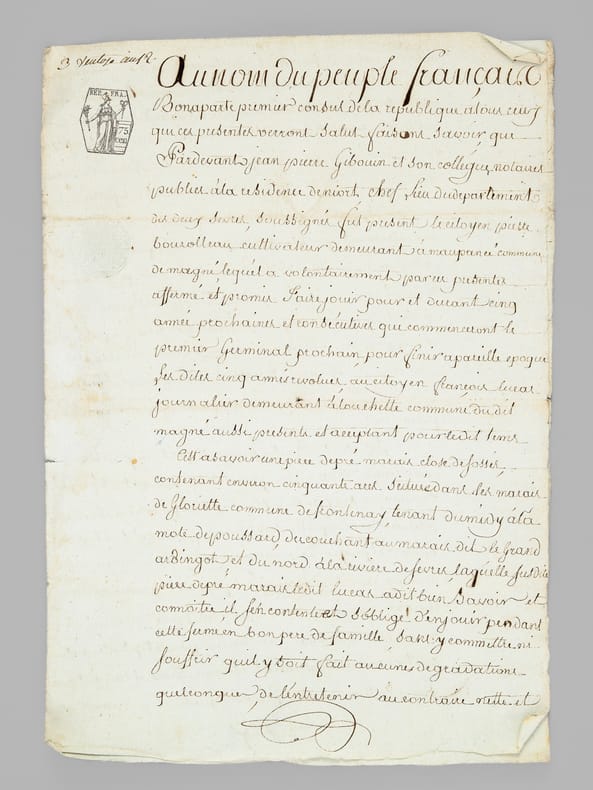 3 ventose an 12
Au nom du peuple français
REP. FRA.
75
CENT
Bonaparte premier consul de la republique a tous ceux
qui ces presentes verront salut faisons savoir que
Pardevant jean pierre Gibouin et son collegue, notaires
publics à la residence de niort, chef lieu du departement
des deux sevres, soussignés fut present le citoyen pierre
bourolleau cultivateur demeurant à maupancé commune
de magné lequel a volontairement par ces presentes
affermé et promis faire jouir pour et durant cinq
année prochaines et consécutives qui commenceront le
premier Germinal prochain pour finir a pareille epoque
les dites cinq annés révolues, au citoyen françois lucas
journalier demeurant à la commune du dit
magné aussi presents et acceptant pour ledit tems
Cest a savoir une piece de pré marais close de fossés,
contenant environ cinquante ares située dans les marais
de Gloriette commune de frontenay, tenant du midy à la
mote de poussard, du couchant au marais dit le Grand
et du nord à la riviere de sevres, laquelle susdite
piece de pré marais ledit lucas a dit bien savoir et
connoitre, il s'en contente et s'oblige d'en jouir pendant
cette ferme en bon pere de famille, sans y commettre ni
souffrir quil y soit fait aucunes degradations
quelconque, de l'entretenir au contraire nette et